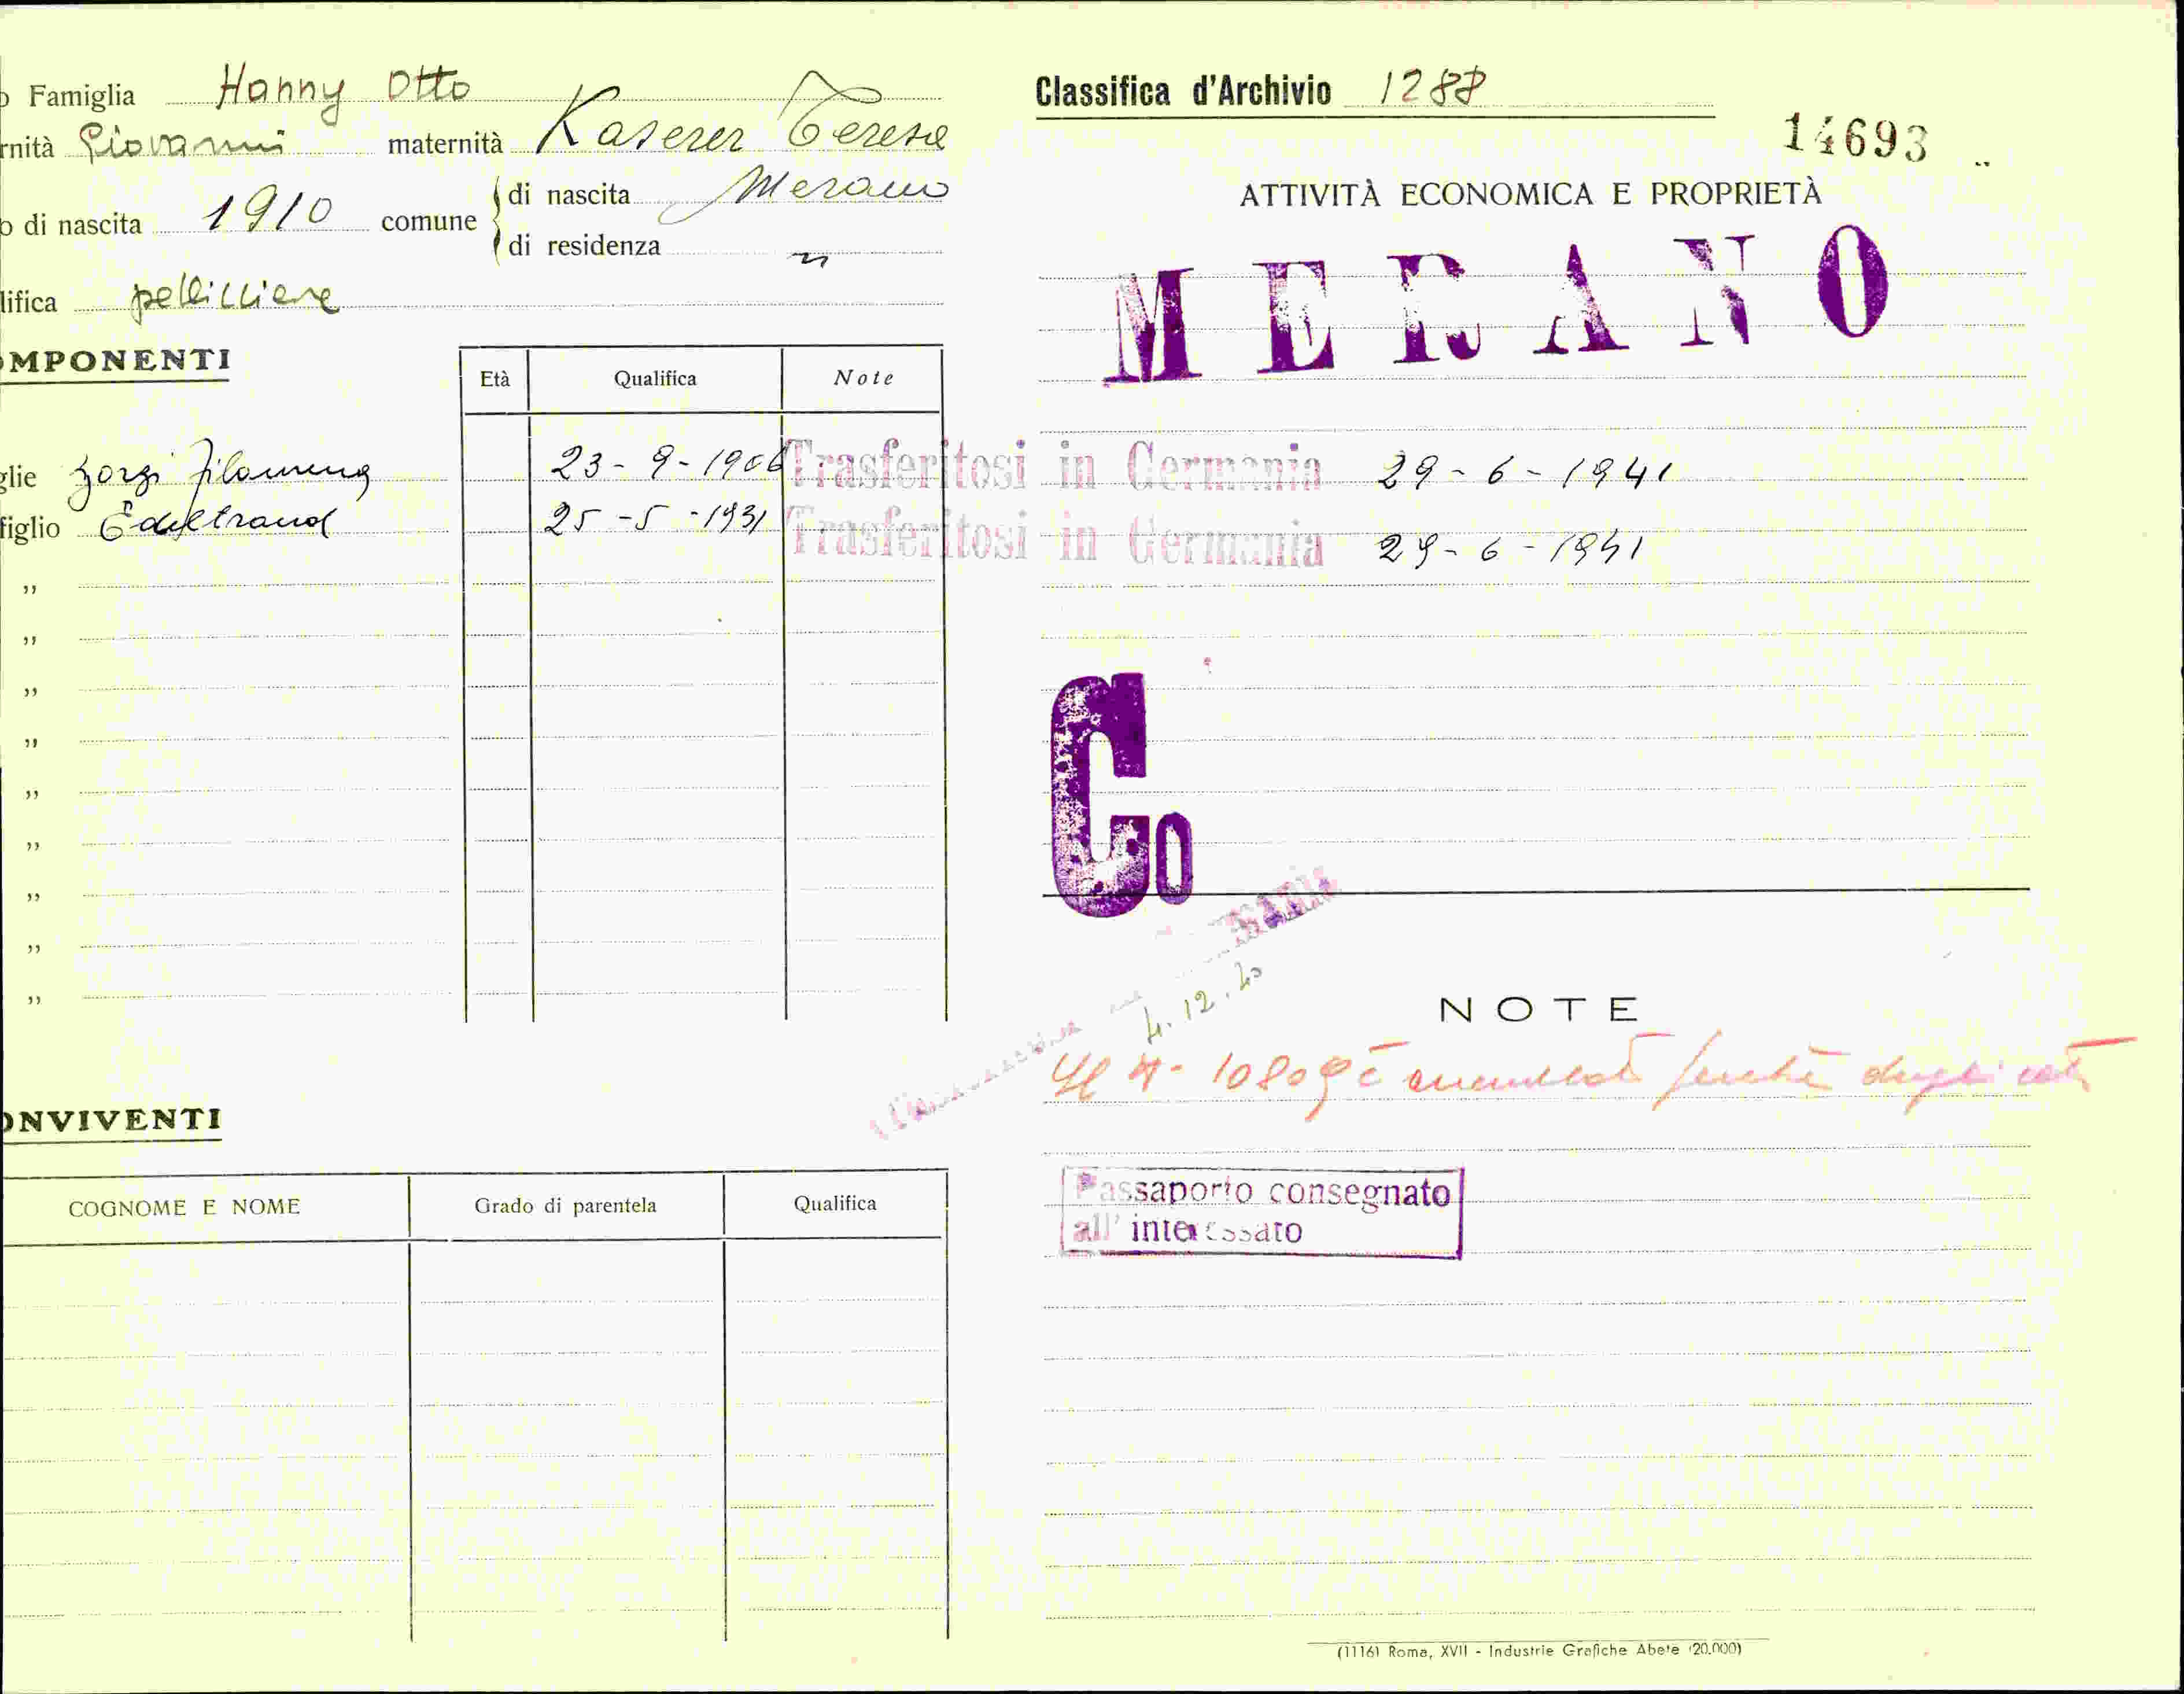 o Famiglia Hanny Otto
rnità Giovanni maternità Kaserer Teresa
o di nascita 1910 comune di nascita Merano
di residenza "
lifica pellicciere
OMPONENTI
Età Qualifica Note
glie Zorzi Filomena 23-9-1906 Trasferitosi in Germania 29-6-1941
figlio Edeltraud 25-5-1931 Trasferitosi in Germania 29-6-1941
"
"
"
"
"
"
"
"
"
ONVIVENTI
COGNOME E NOME Grado di parentela Qualifica
Classifica d'Archivio 1288
14693
ATTIVITÀ ECONOMICA E PROPRIETÀ
MERANO
Co
4.12.40
NOTE
Il N- 10809 è annullato perchè duplicato
Passaporto consegnato
all'interessato
(1116) Roma, XVII - Industrie Grafiche Abete (20.000)